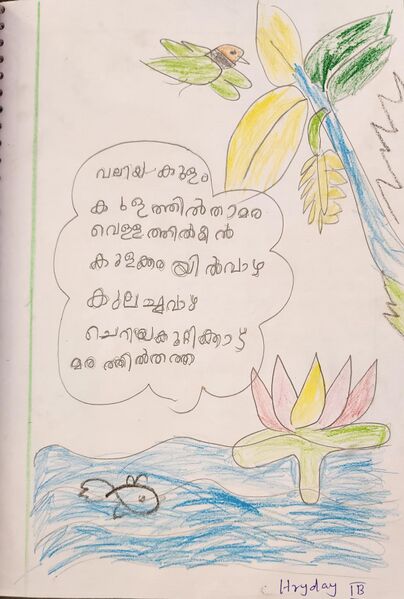 വലിയ കുളം
കുളത്തിൽതാമര
വെള്ളത്തിൽമീൻ
കുളക്കരയിൽവാഴ
കുലച്ചവാഴ
ചെറിയകുറ്റിക്കാട്ട്
മരത്തിൽതത്ത
Hryday IB